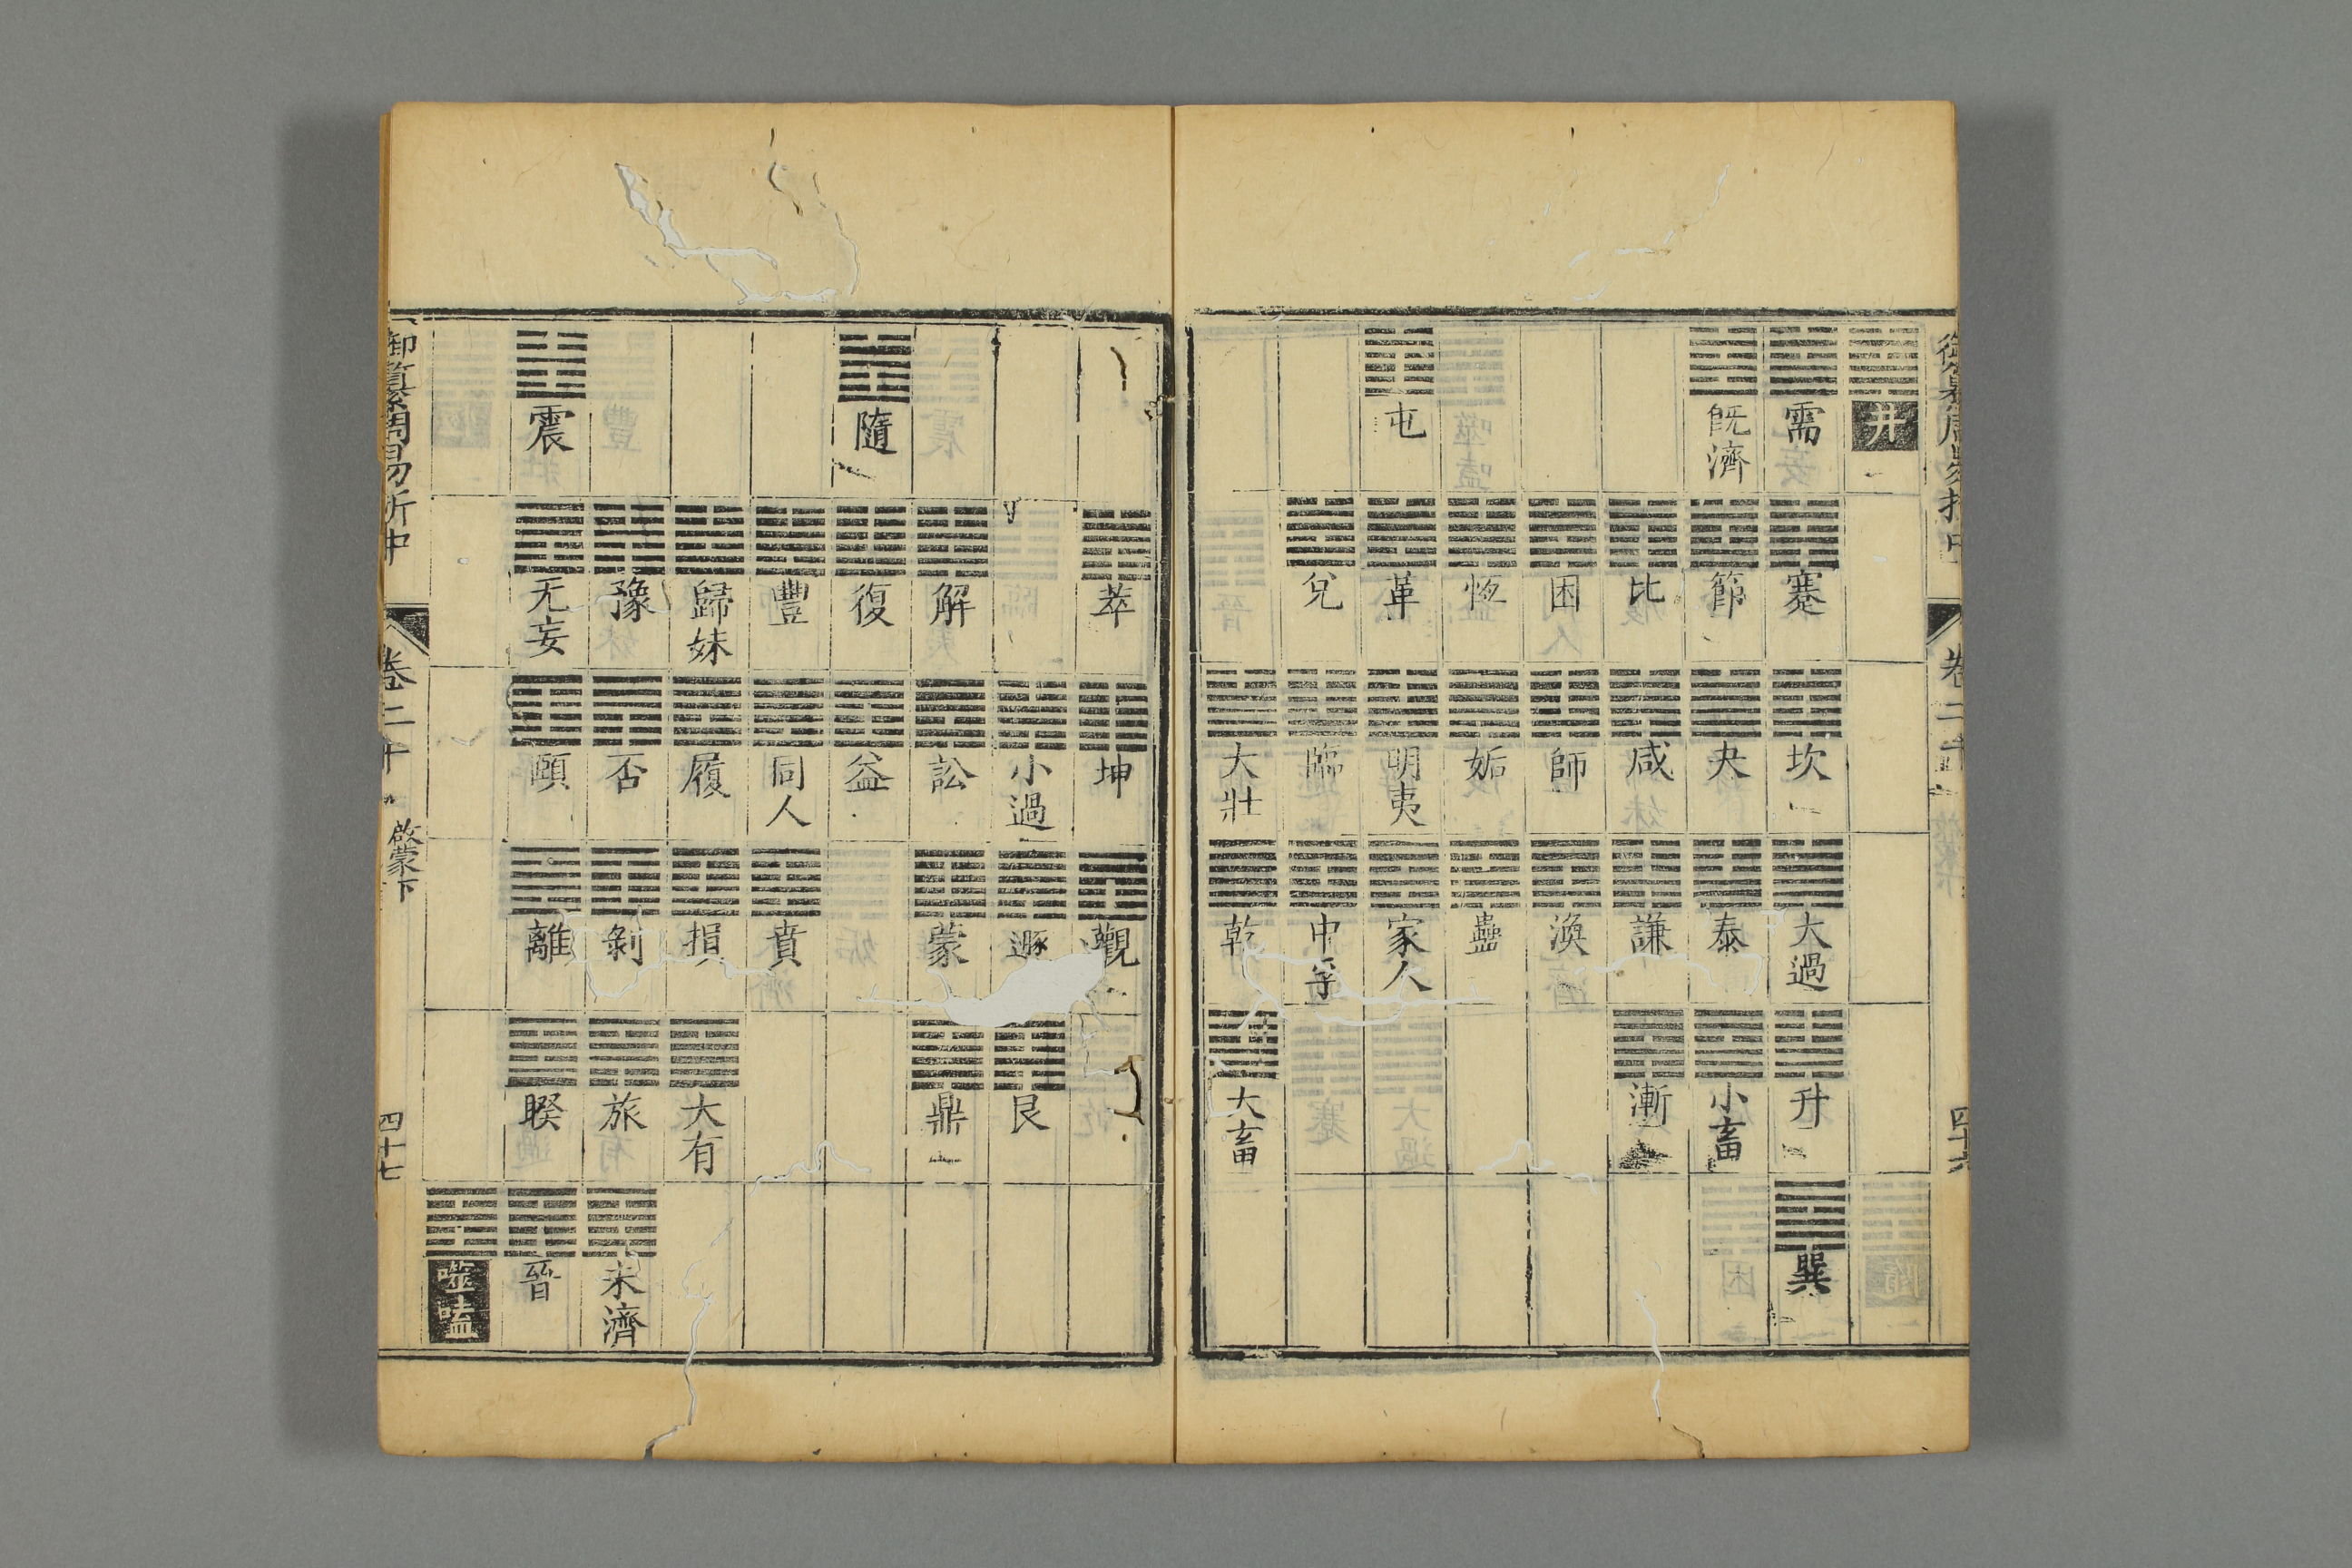 御纂周易折中 卷二十 四十六
井
需 蹇 坎 大過 升 巽
既濟 節 夬 泰 小畜
比 咸 謙 漸
困 師 渙
恆 姤 蠱
屯 革 明夷 家人
兌 臨 中孚
大壯 乾 大畜
萃 坤 觀
小過 遯 艮
解 訟 蒙 鼎
隨 復 益
豐 同人 賁
歸妹 履 損 大有
豫 否 剝 旅 未濟
震 无妄 頤 離 睽 晉
噬嗑
御纂周易折中 卷二十 啟蒙下 四十七